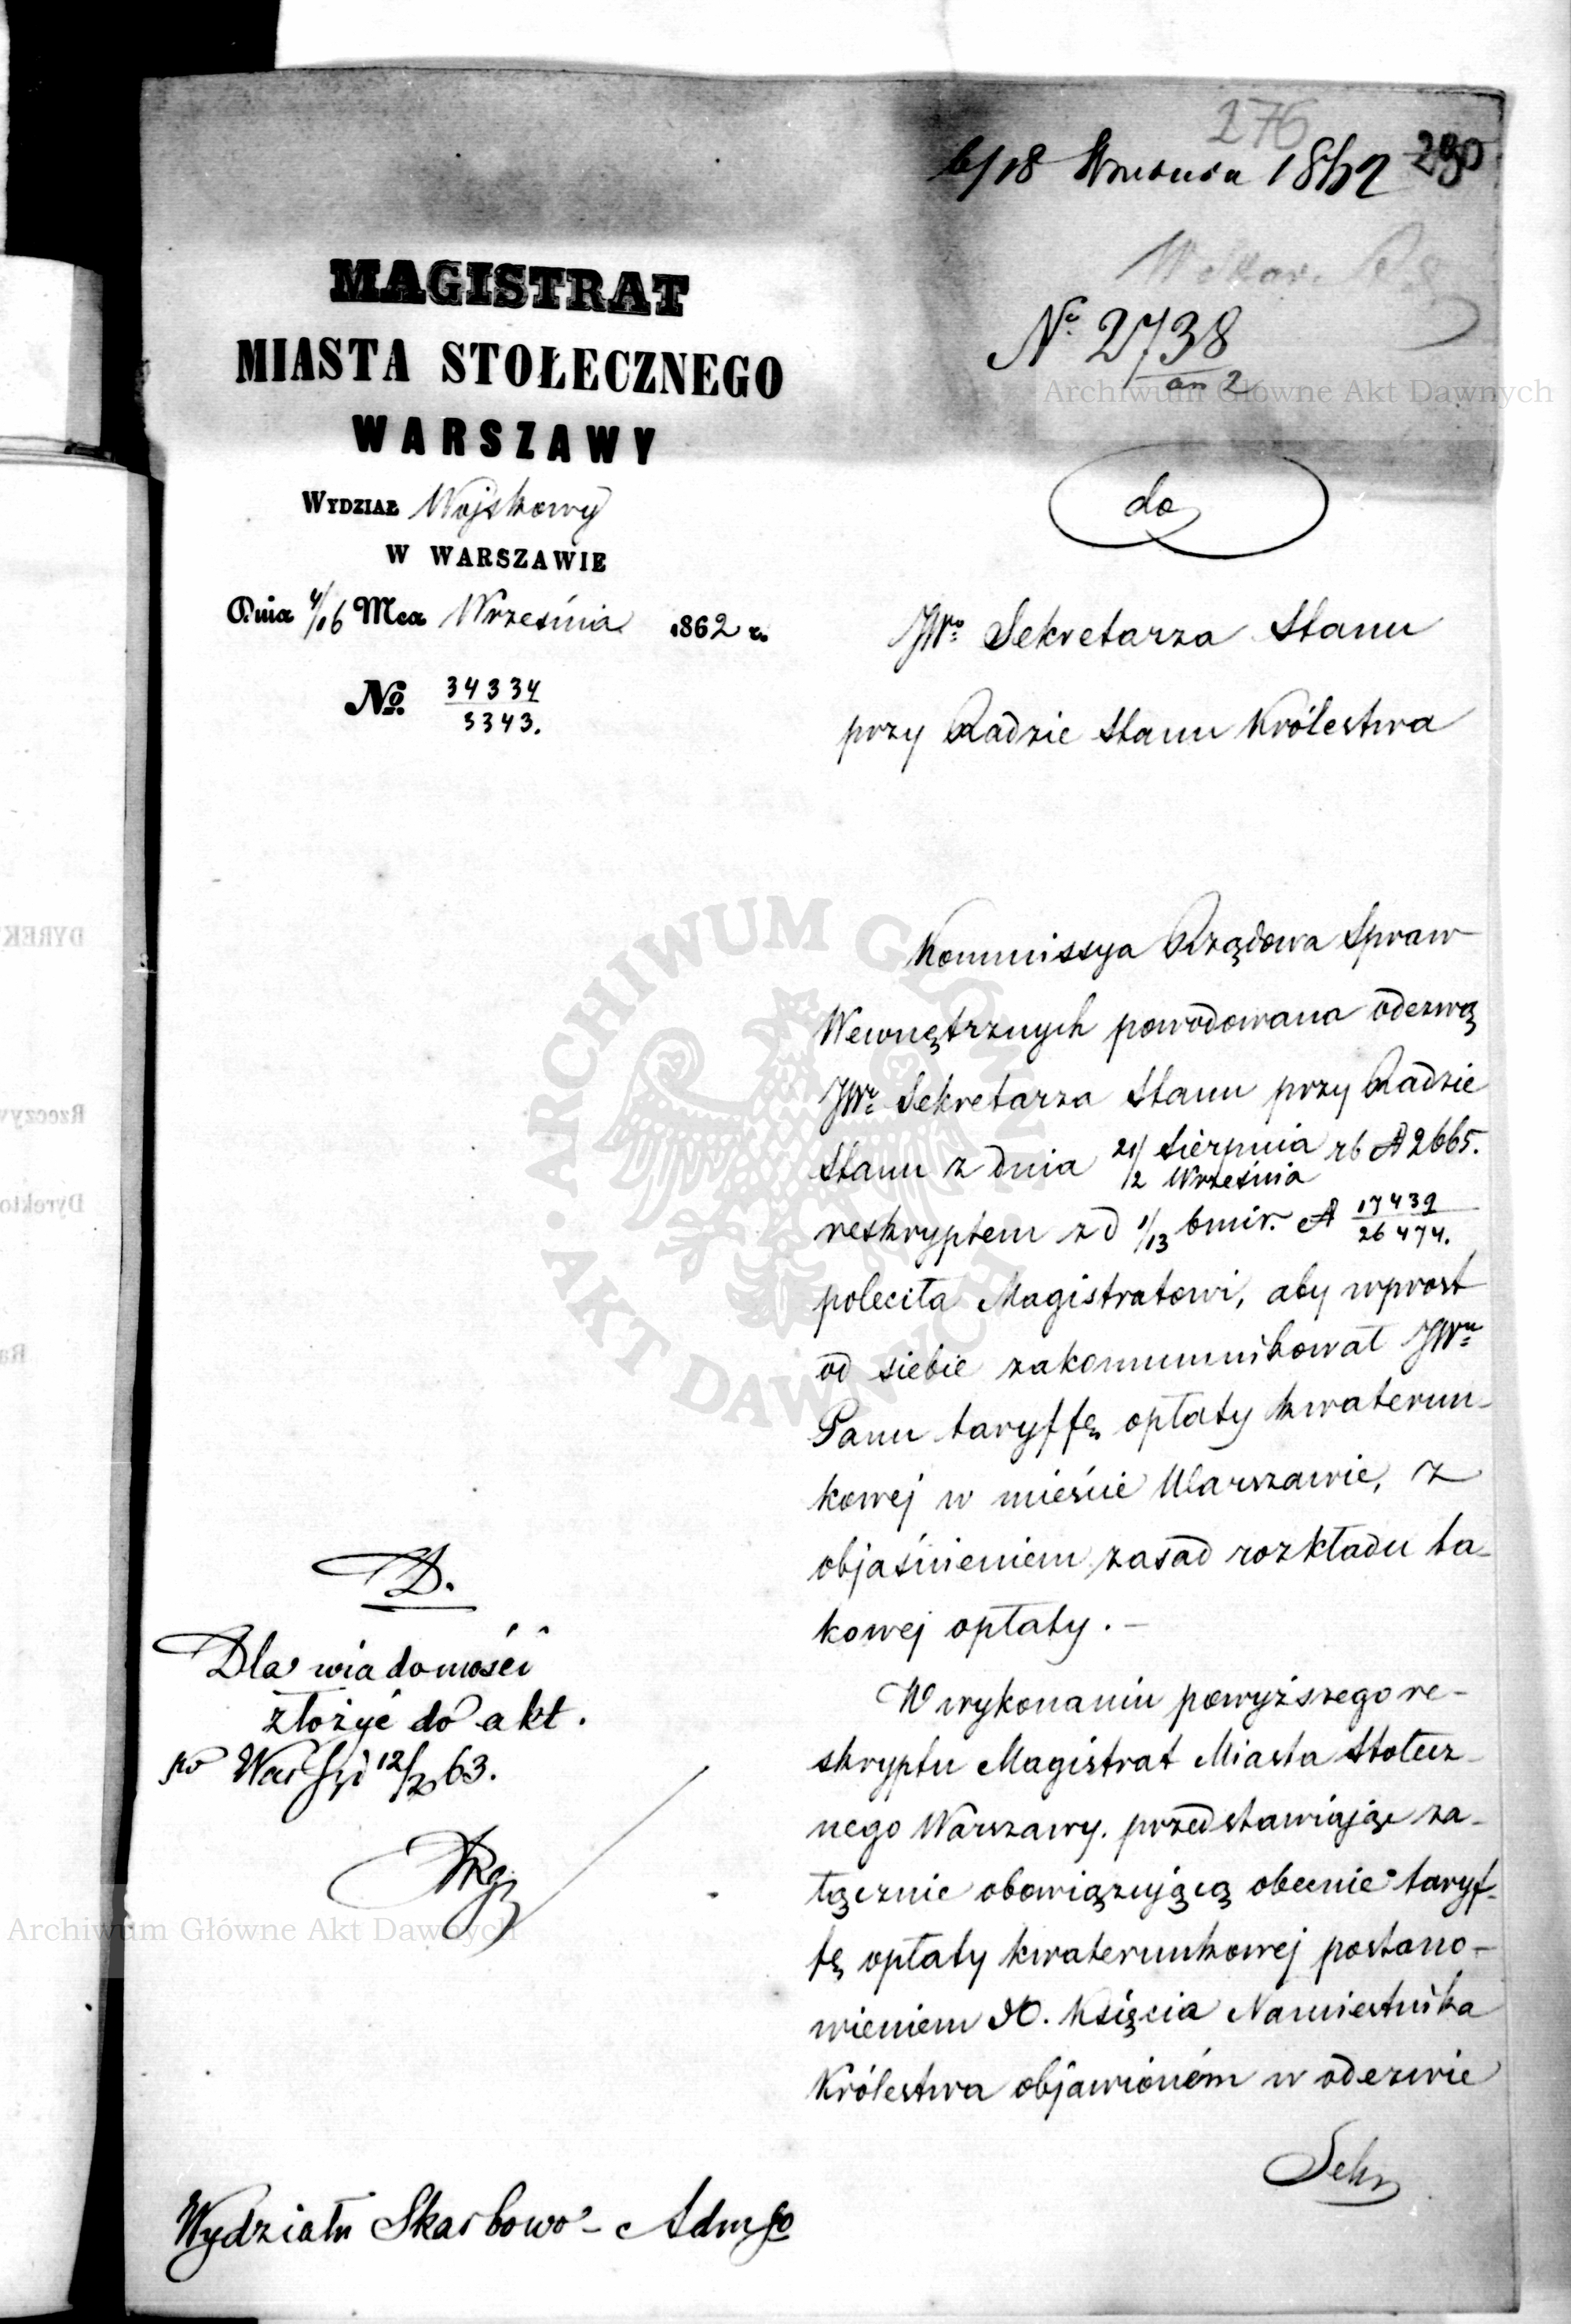 276
6/18 Września 1862 290
MAGISTRAT
MIASTA STOŁECZNEGO
WARSZAWY
WYDZIAŁ Wojskowy
W WARSZAWIE
Dnia 4/16 Mca Września 1862 r.
No. 34334
3343.
No. 2738
do
JWo Sekretarza Stanu
przy Radzie Stanu Królestwa
Kommissya Rządowa Spraw
Wewnętrznych powodowana odezwą
JWo Sekretarza Stanu przy Radzie
Stanu z dnia 21/2 Sierpnia/Września rb N 2665.
reskryptem z d 1/13 bmir. N 17439/26474.
poleciła Magistratowi, aby wprost
od siebie zakommunikował JWu
Panu taryffę opłaty kwaterun-
kowej w mieście Warszawie, z
objaśnieniem zasad rozkładu ta-
kowej opłaty. –
W wykonaniu powyższego re-
skryptu Magistrat Miasta Stołecz-
nego Warszawy. przedstawiając za-
łącznie obowiązującą obecnie taryf-
fę opłaty kwaterunkowej postano-
wieniem JO. Księcia Namiestnika
Królestwa objawioném w odezwie
Sekr
D.
Dla wiadomości
złożyć do akt.
63.
Wydziału Skarbowo - Admgo
Archiwum Główne Akt Dawnych
ARCHIWUM GŁÓWNE
AKT DAWNYCH
Archiwum Główne Akt Dawnych
DYREK
Rzeczyw
Dyrekto
Ra